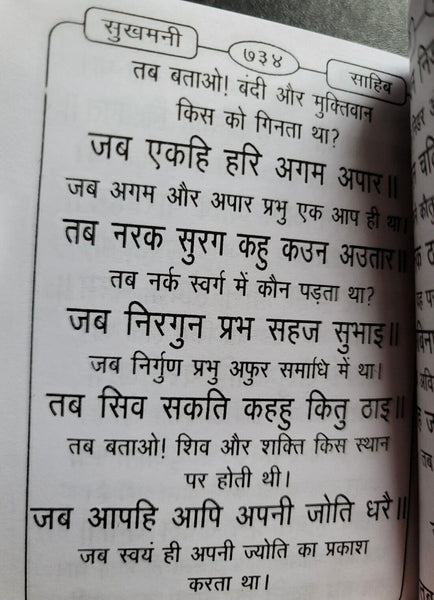 सुखमनी
७३४
साहिब
तब बताओ! बंदी और मुक्तिवान
किस को गिनता था?
जब एकहि हरि अगम अपार॥
जब अगम और अपार प्रभु एक आप ही था।
तब नरक सुरग कहु कउन अउतार॥
तब नर्क स्वर्ग में कौन पड़ता था?
जब निरगुन प्रभ सहज सुभाइ॥
जब निर्गुण प्रभु अफुर समाधि में था।
तब सिव सकति कहहु कितु ठाइ॥
तब बताओ! शिव और शक्ति किस स्थान
पर होती थी।
जब आपहि आपि अपनी जोति धरै॥
जब स्वयं ही अपनी ज्योति का प्रकाश
करता था।